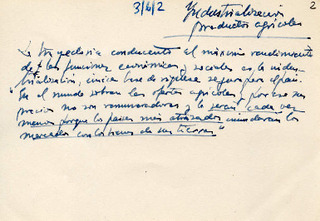 3/6/2
2
Industrialización
productos agrícolas
conducente al máximo rendimiento
de las funciones económicas y sociales es la indus-
trialización, única
En el mundo sobran las ofertas agrícolas y por eso sus
precios no son remuneradores y lo serán cada vez
menos porque los países más atrasados inundarán los
mercados con los frutos de sus tierras"